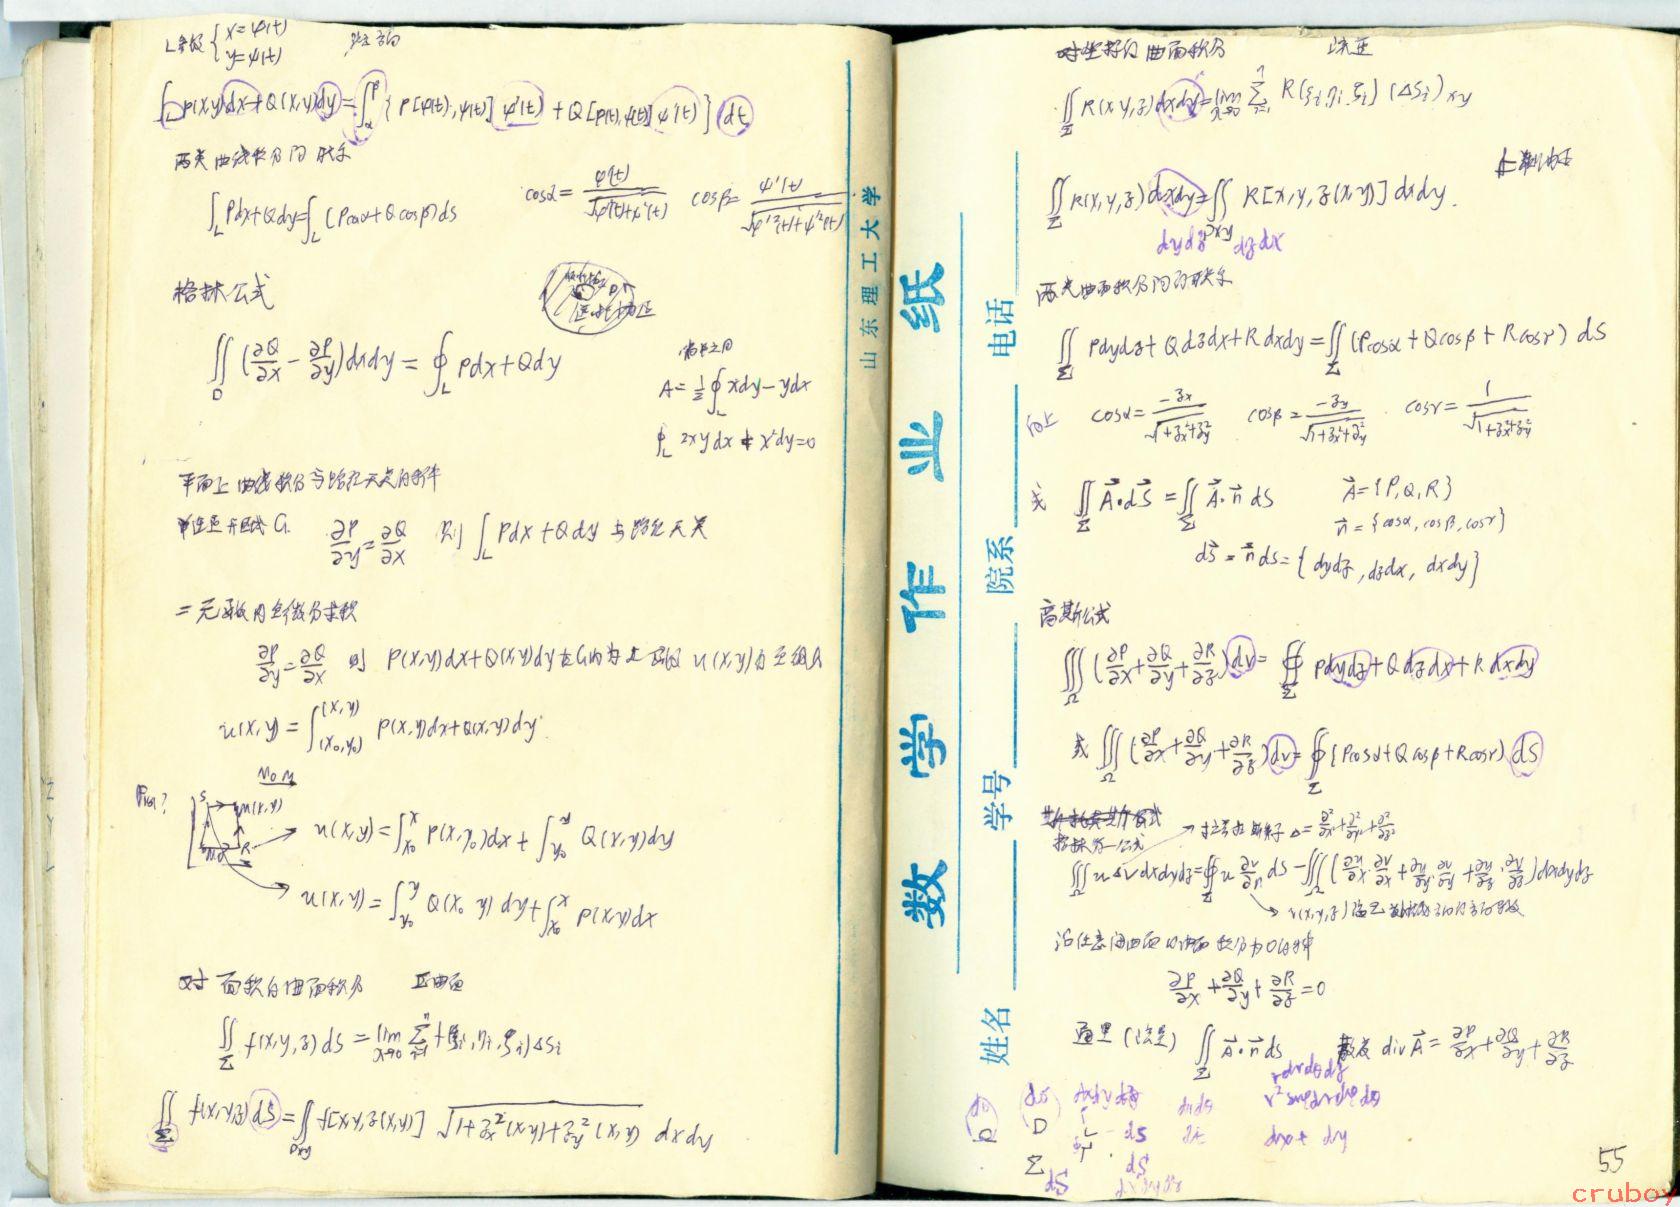 L参数 { x=φ(t)
y=ψ(t)
∫_L P(x,y)dx+Q(x,y)dy=∫_α^β {P[φ(t),ψ(t)] φ'(t) + Q[φ(t),ψ(t)] ψ'(t)} dt
两类曲线积分间联系
∫_L Pdx+Qdy=∫_L (Pcosα+Qcosβ)ds
cosα= φ'(t)/√(φ'²(t)+ψ'²(t)) cosβ= ψ'(t)/√(φ'²(t)+ψ'²(t))
格林公式
∬_D (∂Q/∂x - ∂P/∂y)dxdy = ∮_L Pdx+Qdy
A=½∮_L xdy-ydx
∮_L 2xydx + x²dy=0
平面上曲线积分与路径无关的条件
单连通开区域G. ∂P/∂y=∂Q/∂x 则 ∫_L Pdx+Qdy 与路径无关
二元函数的全微分求积
∂P/∂y=∂Q/∂x 则 P(x,y)dx+Q(x,y)dy在G内为 u(x,y)的全微分
u(x,y)=∫_(x₀,y₀)^(x,y) P(x,y)dx+Q(x,y)dy.
M₀M
S M(x,y)
M₀ R
u(x,y)=∫_x₀^x P(x,y₀)dx+∫_y₀^y Q(x,y)dy
u(x,y)=∫_y₀^y Q(x₀ y)dy+∫_x₀^x P(x,y)dx
对面积的曲面积分
∬_Σ f(x,y,z)dS=lim_λ→0 Σ_i=1^n f(ξi,ηi,ζi)ΔSi
∬_Σ f(x,y,z)dS=∬_Dxy f[x,y,z(x,y)] √(1+z_x²(x,y)+z_y²(x,y)) dxdy
山东理工大学
数学作业纸
姓名 学号 院系 电话
对坐标的曲面积分
∬_Σ R(x,y,z)dxdy=lim_λ→0 Σ_i=1^n R(ξi,ηi,ζi)(ΔSi)xy
∬_Σ R(x,y,z)dxdy=∬_Dxy R[x,y,z(x,y)]dxdy.
dydz dzdx
两类曲面积分间的联系
∬_Σ Pdydz+Qdzdx+Rdxdy=∬_Σ (Pcosα+Qcosβ+Rcosγ) dS
向上 cosα= -z_x/√(1+z_x²+z_y²) cosβ= -z_y/√(1+z_x²+z_y²) cosγ= 1/√(1+z_x²+z_y²)
或 ∬_Σ A⃗·dS⃗=∬_Σ A⃗·n⃗ dS A⃗={P,Q,R}
n⃗={cosα,cosβ,cosγ}
dS⃗=n⃗dS={dydz,dzdx,dxdy}
高斯公式
∭_Ω (∂P/∂x+∂Q/∂y+∂R/∂z)dv=∯_Σ Pdydz+Qdzdx+Rdxdy
或 ∭_Ω (∂P/∂x+∂Q/∂y+∂R/∂z)dv=∯_Σ (Pcosα+Qcosβ+Rcosγ) dS
格林第一公式
拉普拉斯算子 Δ=∂²/∂x²+∂²/∂y²+∂²/∂z²
∭_Ω uΔvdxdydz=∯_Σ u ∂v/∂n dS-∭_Ω (∂u/∂x·∂v/∂x+∂u/∂y·∂v/∂y+∂u/∂z·∂v/∂z)dxdydz
沿任意闭曲面的曲面积分为0的条件
∂P/∂x+∂Q/∂y+∂R/∂z=0
通量 ∬_Σ A⃗·n⃗ds 散度 divA⃗=∂P/∂x+∂Q/∂y+∂R/∂z
rdrdθdz
r²sinφdrdφdθ
D
Σ
dS
dx+dy
55
cruboy